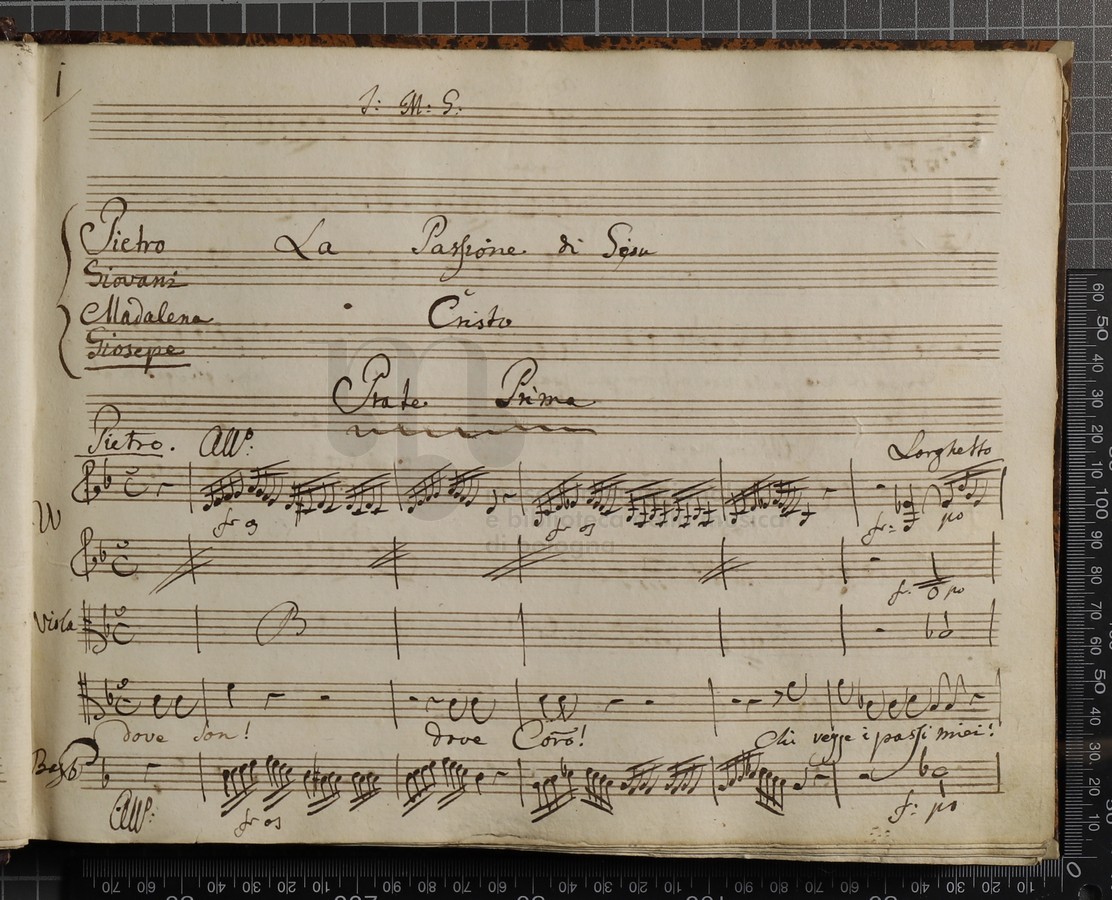 1
J: M: G:
Pietro La Passione di Gesu
Giovani
Madalena Cristo
Giosepe
Prate Prima
Pietro. All.º Larghetto
VV
fr: po
f. po
Viola
dove son! dove Corro! Chi regge i passi miei!
Basso
All.º: f: po